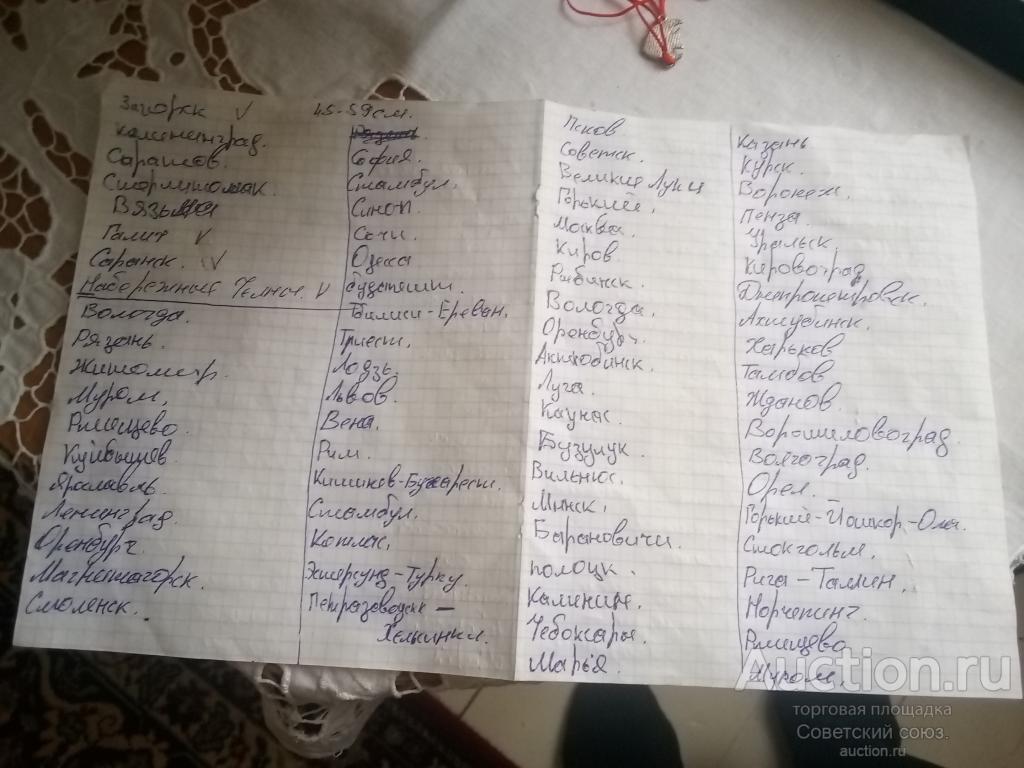 Загорск V
Калининград.
Саратов.
Стерлитамак.
Вязьма
Галич V
Саранск. V
Набережные Челны. V
Вологда.
Рязань.
Житомир.
Муром.
Ртищево.
Куйбышев
Ярославль.
Ленинград.
Оренбург.
Магнитогорск.
Смоленск.
45-59 см.
София.
Стамбул.
Синоп.
Сочи.
Одесса
Будапешт.
Тбилиси-Ереван.
Триест.
Лодзь.
Львов.
Вена.
Рим.
Кишинев-Бухарест.
Стамбул.
Котлас.
Турку.
Петрозаводск -
Хельсинки.
Псков
Советск.
Великие Луки
Горький.
Москва.
Киров.
Рыбинск.
Вологда.
Оренбург.
Актюбинск.
Луга.
Каунас.
Бузулук.
Вильнюс.
Минск.
Барановичи.
Полоцк.
Калинин.
Чебоксары.
Марья.
Казань
Курск.
Воронеж.
Пенза.
Уральск.
Кировоград.
Днепропетровск.
Актюбинск.
Харьков
Тамбов
Жданов.
Ворошиловоград.
Волгоград.
Орел.
Горький-Йошкор-Ола.
Стокгольм.
Рига-Таллин.
Норчепинг.
Ртищево
Муром.
Auction.ru
торговая площадка
Советский союз.
auction.ru